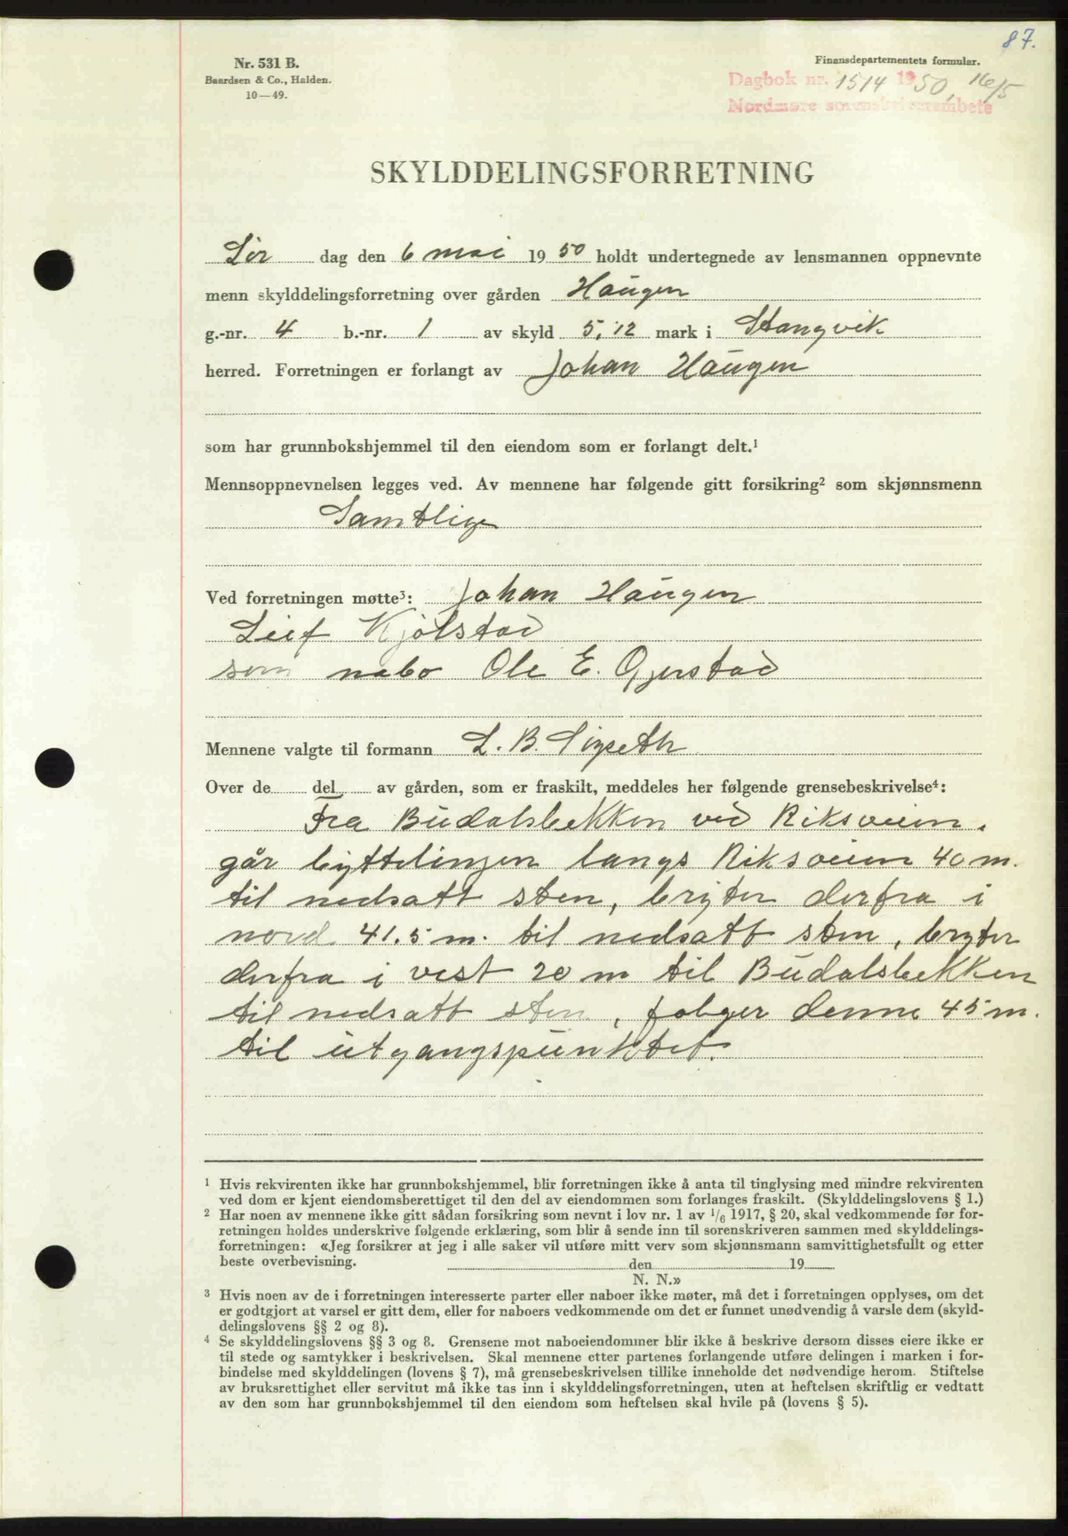 87.
Nr. 531 B.
Baardsen & Co., Halden.
10—49.
Finansdepartementets formular.
Dagbok nr. 1514 1950, 16/5
Nordmøre sorenskriverembete
SKYLDDELINGSFORRETNING
Lør dag den 6 mai 1950 holdt undertegnede av lensmannen oppnevnte
menn skylddelingsforretning over gården Haugen
g.-nr. 4 b.-nr. 1 av skyld 5,12 mark i Stangvik
herred. Forretningen er forlangt av Johan Haugen
som har grunnbokshjemmel til den eiendom som er forlangt delt.¹
Mennsoppnevnelsen legges ved. Av mennene har følgende gitt forsikring² som skjønnsmenn
Samtlige
Ved forretningen møtte³: Johan Haugen
Leif Kjølstad
som nabo Ole E. Gjerstad
Mennene valgte til formann L. B. Sigseth
Over de del av gården, som er fraskilt, meddeles her følgende grensebeskrivelse⁴:
Fra Budalsbekken ved Riksveien.
går byttelinjen langs Riksveien 40 m.
til nedsatt sten, bryter derfra i
nord 41.5 m. til nedsatt sten, bryter
derfra i vest 20 m til Budalsbekken
til nedsatt sten, følger denne 45 m.
til utgangspunktet.
¹ Hvis rekvirenten ikke har grunnbokshjemmel, blir forretningen ikke å anta til tinglysing med mindre rekvirenten
ved dom er kjent eiendomsberettiget til den del av eiendommen som forlanges fraskilt. (Skylddelingslovens § 1.)
² Har noen av mennene ikke gitt sådan forsikring som nevnt i lov nr. 1 av 1/6 1917, § 20, skal vedkommende før for-
retningen holdes underskrive følgende erklæring, som blir å sende inn til sorenskriveren sammen med skylddelings-
forretningen: «Jeg forsikrer at jeg i alle saker vil utføre mitt verv som skjønnsmann samvittighetsfullt og etter
beste overbevisning. den 19
N. N.»
³ Hvis noen av de i forretningen interesserte parter eller naboer ikke møter, må det i forretningen opplyses, om det
er godtgjort at varsel er gitt dem, eller for naboers vedkommende om det er funnet unødvendig å varsle dem (skyld-
delingslovens §§ 2 og 8).
⁴ Se skylddelingslovens §§ 3 og 8. Grensene mot naboeiendommer blir ikke å beskrive dersom disses eiere ikke er
til stede og samtykker i beskrivelsen. Skal mennene etter partenes forlangende utføre delingen i marken i for-
bindelse med skylddelingen (lovens § 7), må grensebeskrivelsen tillike inneholde det nødvendige herom. Stiftelse
av bruksrettighet eller servitut må ikke tas inn i skylddelingsforretningen, uten at heftelsen skriftlig er vedtatt
av den som har grunnbokshjemmel til den eiendom som heftelsen skal hvile på (lovens § 5).